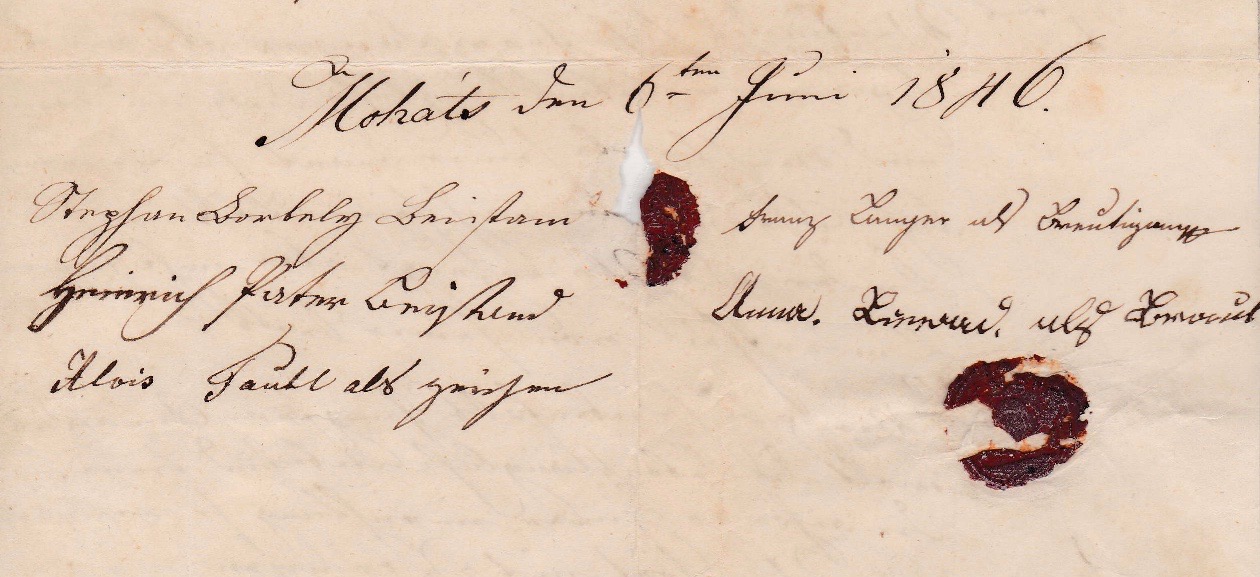 Moháts den 6ten Juni 1846.
Stephan Gorbely Beistam
Heinrich Pater Beistand
Alois Taubl als zeichen
franz Langer als Breutigam
Anna. Konrad. als Braut